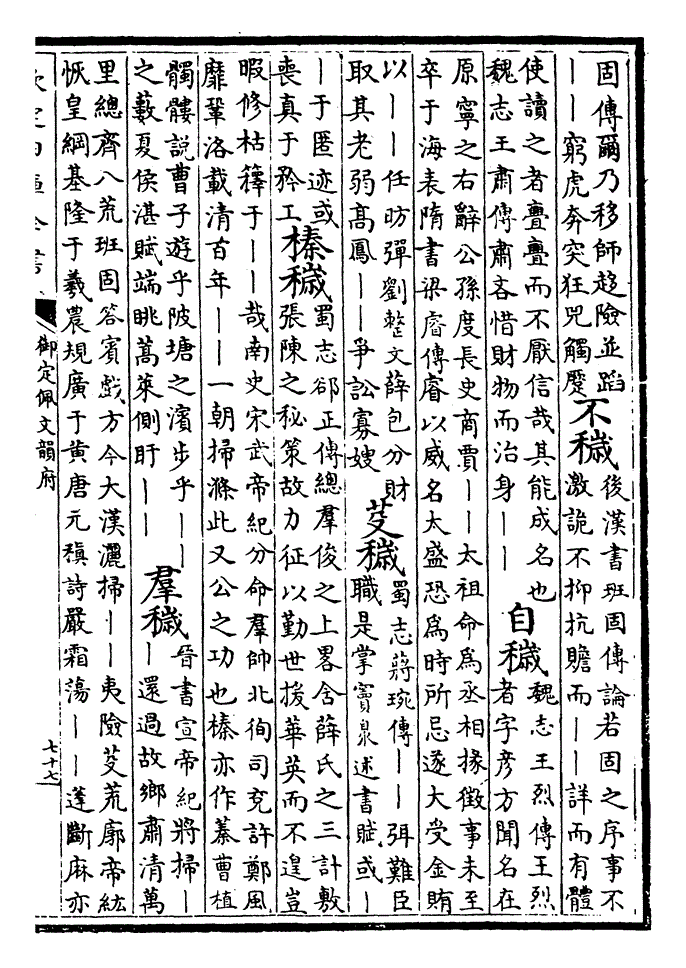 固傳爾乃移師趍險並蹈
——窮虎奔突狂兕觸蹷
不穢
後漢書班固傳論若固之序事不
激詭不抑抗贍而——詳而有體
使讀之者亹亹而不厭信哉其能成名也
魏志王肅傳肅吝惜財物而治身——
自穢
魏志王烈傳王烈
者字彦方聞名在
原寧之右辭公孫度長史商賈——太祖命為丞相掾徵事未至
卒于海表隋書梁睿傳睿以威名太盛恐為時所忌遂大受金賄
以——任昉彈劉整文薛包分財
取其老弱高鳳——爭訟寡嫂
芟穢
蜀志蔣琬傳——弭難臣
職是掌竇泉述書賦或—
—于匿迹或
喪真于矜工
榛穢
蜀志郤正傳總羣俊之上畧含薛氏之三計敷
張陳之秘策故力征以勤世援華英而不遑豈
暇修枯籜于——哉南史宋武帝紀分命羣帥北徇司兗許鄭風
靡鞏洛載清百年——一朝掃滌此又公之功也榛亦作蓁曹植
髑髏説曹子遊乎陂塘之濱步乎——
之藪夏侯湛賦端眺蒿萊側盱——
羣穢
晉書宣帝紀將掃—
—還過故鄉肅清萬
里總齊八荒班固答賓戲方今大漢灑掃——夷險芟荒廓帝紘
恢皇綱基隆于羲農規廣于黄唐元稹詩嚴霜蕩——蓬斷麻亦
御定佩文韻府
七十七